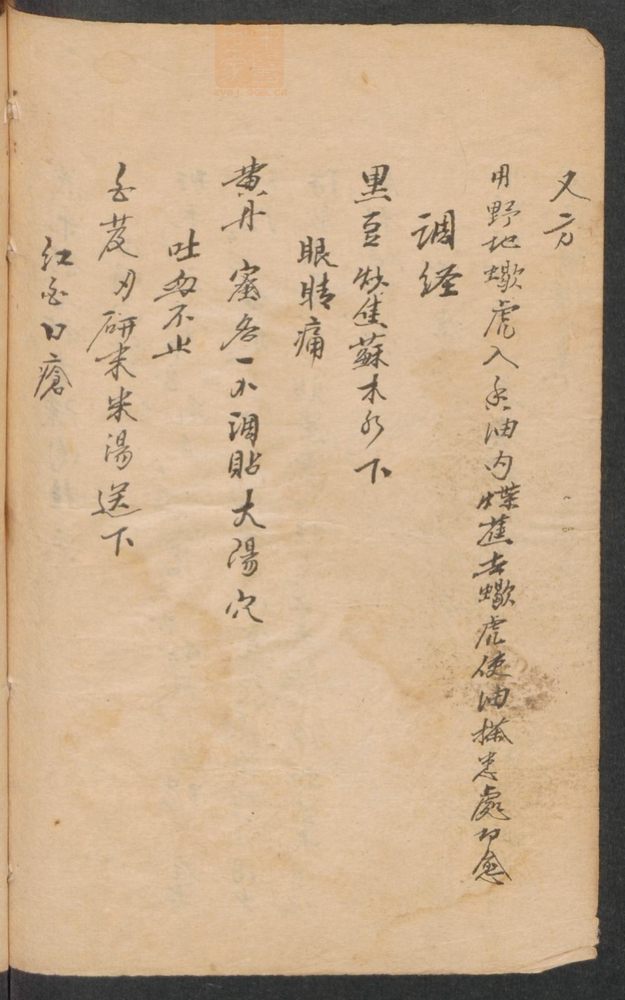 又方
用野地蠍虎入香油内煠蕉去蠍虎使油搽患處即愈
調経
黒豆炒焦蘇木水下
眼睛痛
黄丹 蜜各一小調貼大陽穴
吐血不止
白芨 研末米湯送下
紅白口瘡